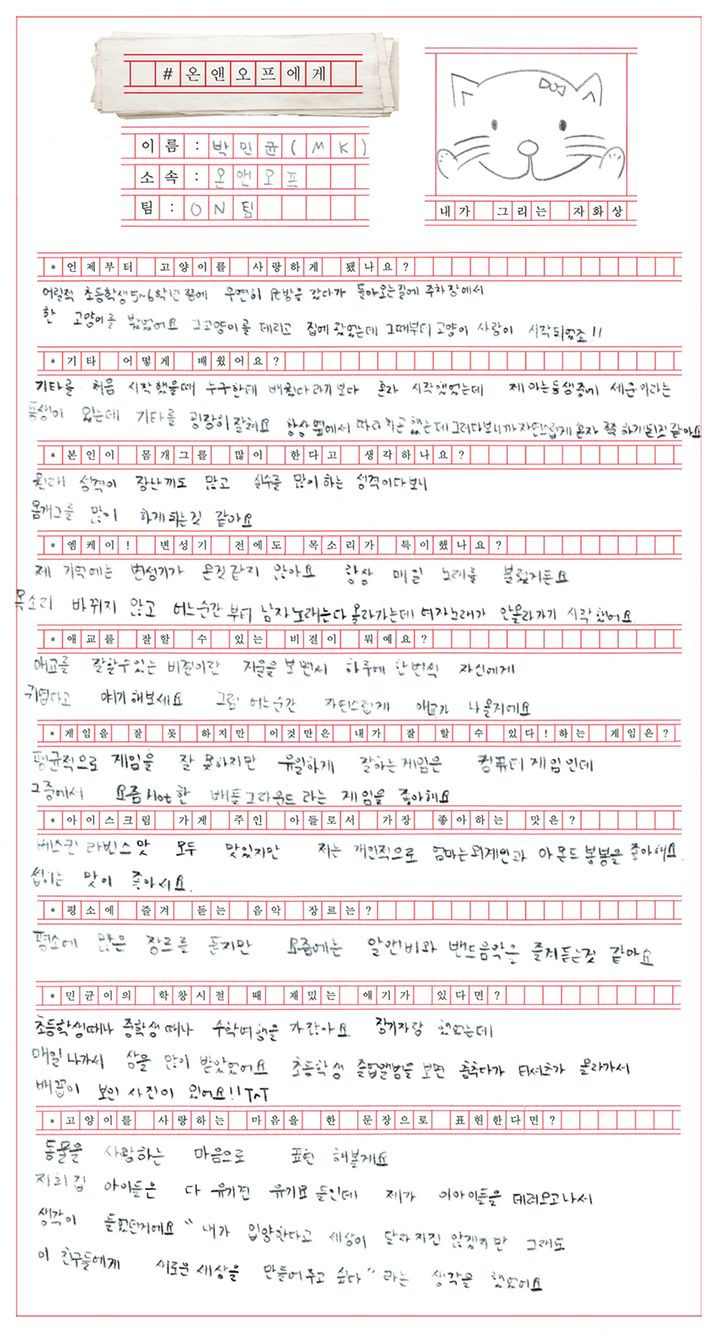 #온앤오프에게
이름 : 박민균(MK)
소속 : 온앤오프
팀 : ON팀
내가 그리는 자화상
* 언제부터 고양이를 사랑하게 됐나요?
어릴적 초등학생 5~6학년 쯤에 우연히 PC방을 갔다가 돌아오는길에 주차장에서
한 고양이를 봤었어요 그고양이를 데리고 집에 왔었는데 그때부터 고양이 사랑이 시작되었죠!!
* 기타 어떻게 배웠어요?
기타를 처음 시작했을때 누구한테 배웠다라기보다 혼자 시작했었는데 제 아는동생중에 세운이라는
동생이 있는데 기타를 굉장히 잘쳐요 항상 옆에서 따라치곤 했는데 그러다보니까 자연스럽게 혼자 쭉 하게된것 같아요
* 본인이 몸개그를 많이 한다고 생각하나요?
원래 성격이 장난끼도 많고 실수를 많이하는 성격이다보니
몸개그를 많이 하게되는것 같아요
* 엠케이! 변성기 전에도 목소리가 특이했나요?
제 기억에는 변성기가 온것같지 않아요 항상 매일 노래를 불렀거든요
목소리 바뀌지 않고 어느순간 부터 남자노래는다 올라가는데 여자노래가 안올라가기 시작했어요
* 애교를 잘할 수 있는 비결이 뭐예요?
애교를 잘할수있는 비결이란 거울을 보면서 하루에 한번씩 자신에게
귀엽다고 얘기해보세요 그럼 어느순간 자연스럽게 애교가 나올거에요
* 게임을 잘 못 하지만 이것만은 내가 잘 할 수 있다! 하는 게임은?
평균적으로 게임을 잘 못하지만 유일하게 잘하는게임은 컴퓨터 게임인데
그중에서 요즘 Hot한 배틀그라운드 라는 게임을 좋아해요
* 아이스크림 가게 주인 아들로서 가장 좋아하는 맛은?
베스킨 라빈스맛 모두 맛있지만 저는 개인적으로 엄마는외계인과 아몬드 봉봉을 좋아해요.
씹히는 맛이 좋아서요.
* 평소에 즐겨 듣는 음악 장르는?
평소에 많은 장르를 듣지만 요즘에는 알앤비와 밴드음악을 즐겨듣는것 같아요
* 민균이의 학창시절 때 재밌는 얘기가 있다면?
초등학생때나 중학생때나 수학여행을 가잖아요 장기자랑 했었는데
매일나가서 상을 많이 받았었어요 초등학생 졸업앨범을 보면 춤추다가 티셔츠가 올라가서
배꼽이 보인 사진이 있어요!! T^T
* 고양이를 사랑하는 마음을 한 문장으로 표현한다면?
동물을 사랑하는 마음으로 표현 해볼게요
저희집 아이들은 다 유기견 유기묘 들인데 제가 이아이들을 데려오고나서
생각이 들었던거에요 "내가 입양한다고 세상이 달라지진 않겠지만 그래도
이 친구들에게 새로운세상을 만들어주고 싶다" 라는 생각을 했었어요